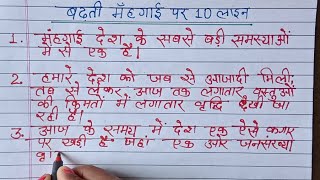 बढ़ती मँहगाई पर 10 लाइन
1. मंहगाई देश के सबसे बड़ी समस्याओं
में से एक है।
2. हमारे देश को जब से आजादी मिली,
तब से लेकर आज तक लगातार वस्तुओं
की किमतों में लगातार वृद्धि देखी जा
रही है।
3. आज के समय में देश एक ऐसे कगार
पर खड़ी है जहां एक ओर जनसंख्या